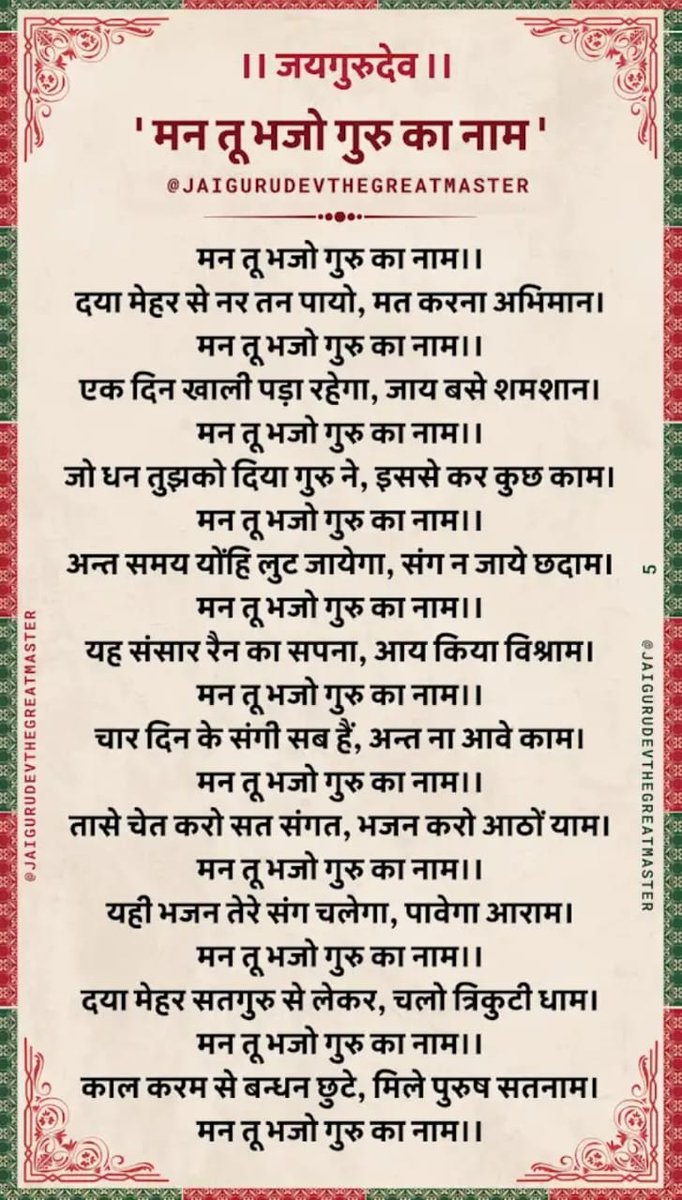 ।। जयगुरुदेव ।।
' मन तू भजो गुरु का नाम '
@JAIGURUDEVTHEGREATMASTER
मन तू भजो गुरु का नाम।।
दया मेहर से नर तन पायो, मत करना अभिमान।
मन तू भजो गुरु का नाम।।
एक दिन खाली पड़ा रहेगा, जाय बसे शमशान।
मन तू भजो गुरु का नाम।।
जो धन तुझको दिया गुरु ने, इससे कर कुछ काम।
मन तू भजो गुरु का नाम।।
अन्त समय योंहि लुट जायेगा, संग न जाये छदाम।
मन तू भजो गुरु का नाम।।
यह संसार रैन का सपना, आय किया विश्राम।
मन तू भजो गुरु का नाम।।
चार दिन के संगी सब हैं, अन्त ना आवे काम।
मन तू भजो गुरु का नाम।।
तासे चेत करो सत संगत, भजन करो आठों याम।
मन तू भजो गुरु का नाम।।
यही भजन तेरे संग चलेगा, पावेगा आराम।
मन तू भजो गुरु का नाम।।
दया मेहर सतगुरु से लेकर, चलो त्रिकुटी धाम।
मन तू भजो गुरु का नाम।।
काल करम से बन्धन छुटे, मिले पुरुष सतनाम।
मन तू भजो गुरु का नाम।।
@JAIGURUDEVTHEGREATMASTER
5
@JAIGURUDEVTHEGREATMASTER